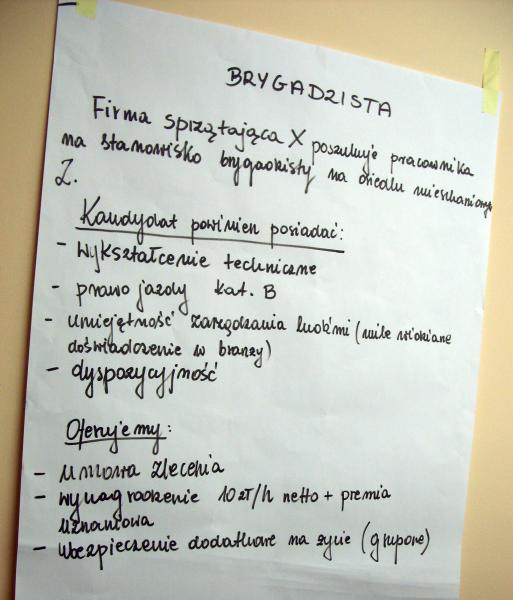 BRYGADZISTA
Firma sprzątająca X poszukuje pracownika
na stanowisko brygadzisty na osiedlu mieszkaniowym
Z.
Kandydat powinien posiadać:
- wykształcenie techniczne
- prawo jazdy kat. B
- umiejętność zarządzania ludźmi (mile widziane
doświadczenie w branży)
- dyspozycyjność
Oferujemy:
- umowa zlecenia
- wynagrodzenie 10 zł/h netto + premia
uznaniowa
- ubezpieczenie dodatkowe na życie (grupowe)